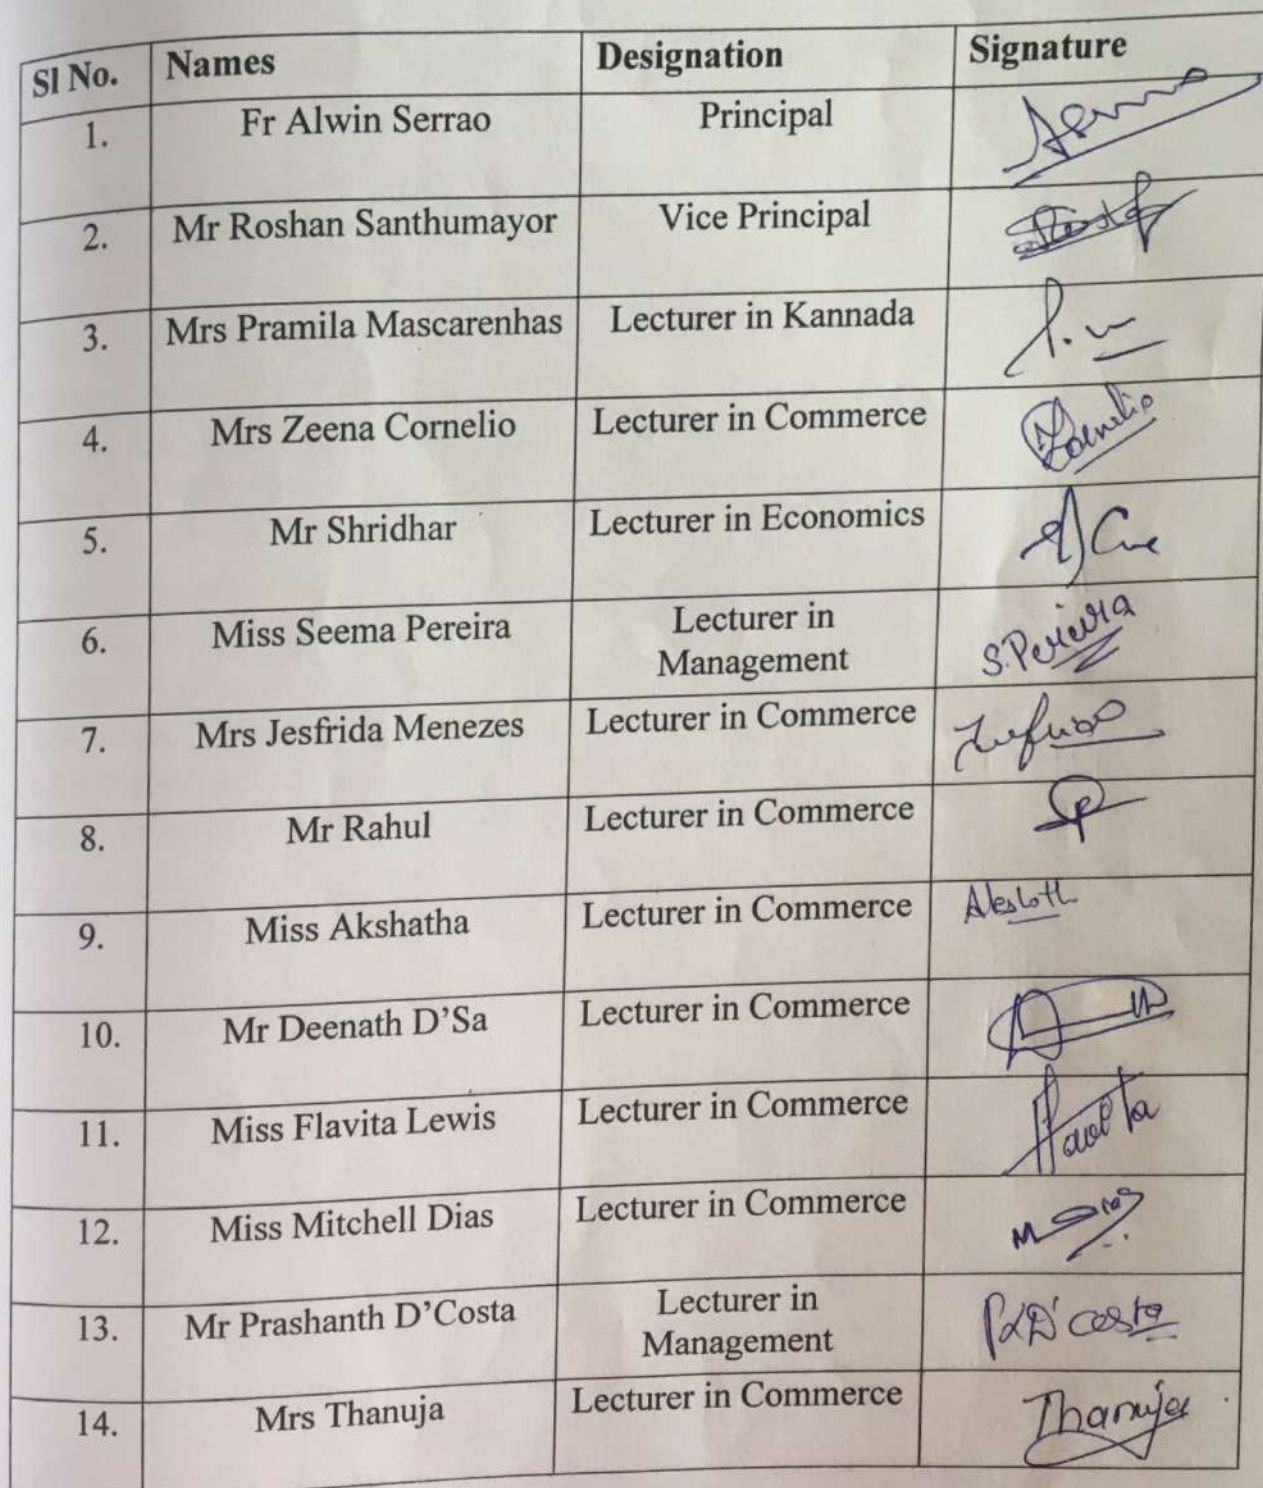 Sl No. Names Designation Signature
1. Fr Alwin Serrao Principal
2. Mr Roshan Santhumayor Vice Principal
3. Mrs Pramila Mascarenhas Lecturer in Kannada
4. Mrs Zeena Cornelio Lecturer in Commerce
5. Mr Shridhar Lecturer in Economics
6. Miss Seema Pereira Lecturer in
Management S.Pereira
7. Mrs Jesfrida Menezes Lecturer in Commerce
8. Mr Rahul Lecturer in Commerce
9. Miss Akshatha Lecturer in Commerce
10. Mr Deenath D’Sa Lecturer in Commerce
11. Miss Flavita Lewis Lecturer in Commerce
12. Miss Mitchell Dias Lecturer in Commerce
13. Mr Prashanth D’Costa Lecturer in
Management D'costa
14. Mrs Thanuja Lecturer in Commerce Thanuja